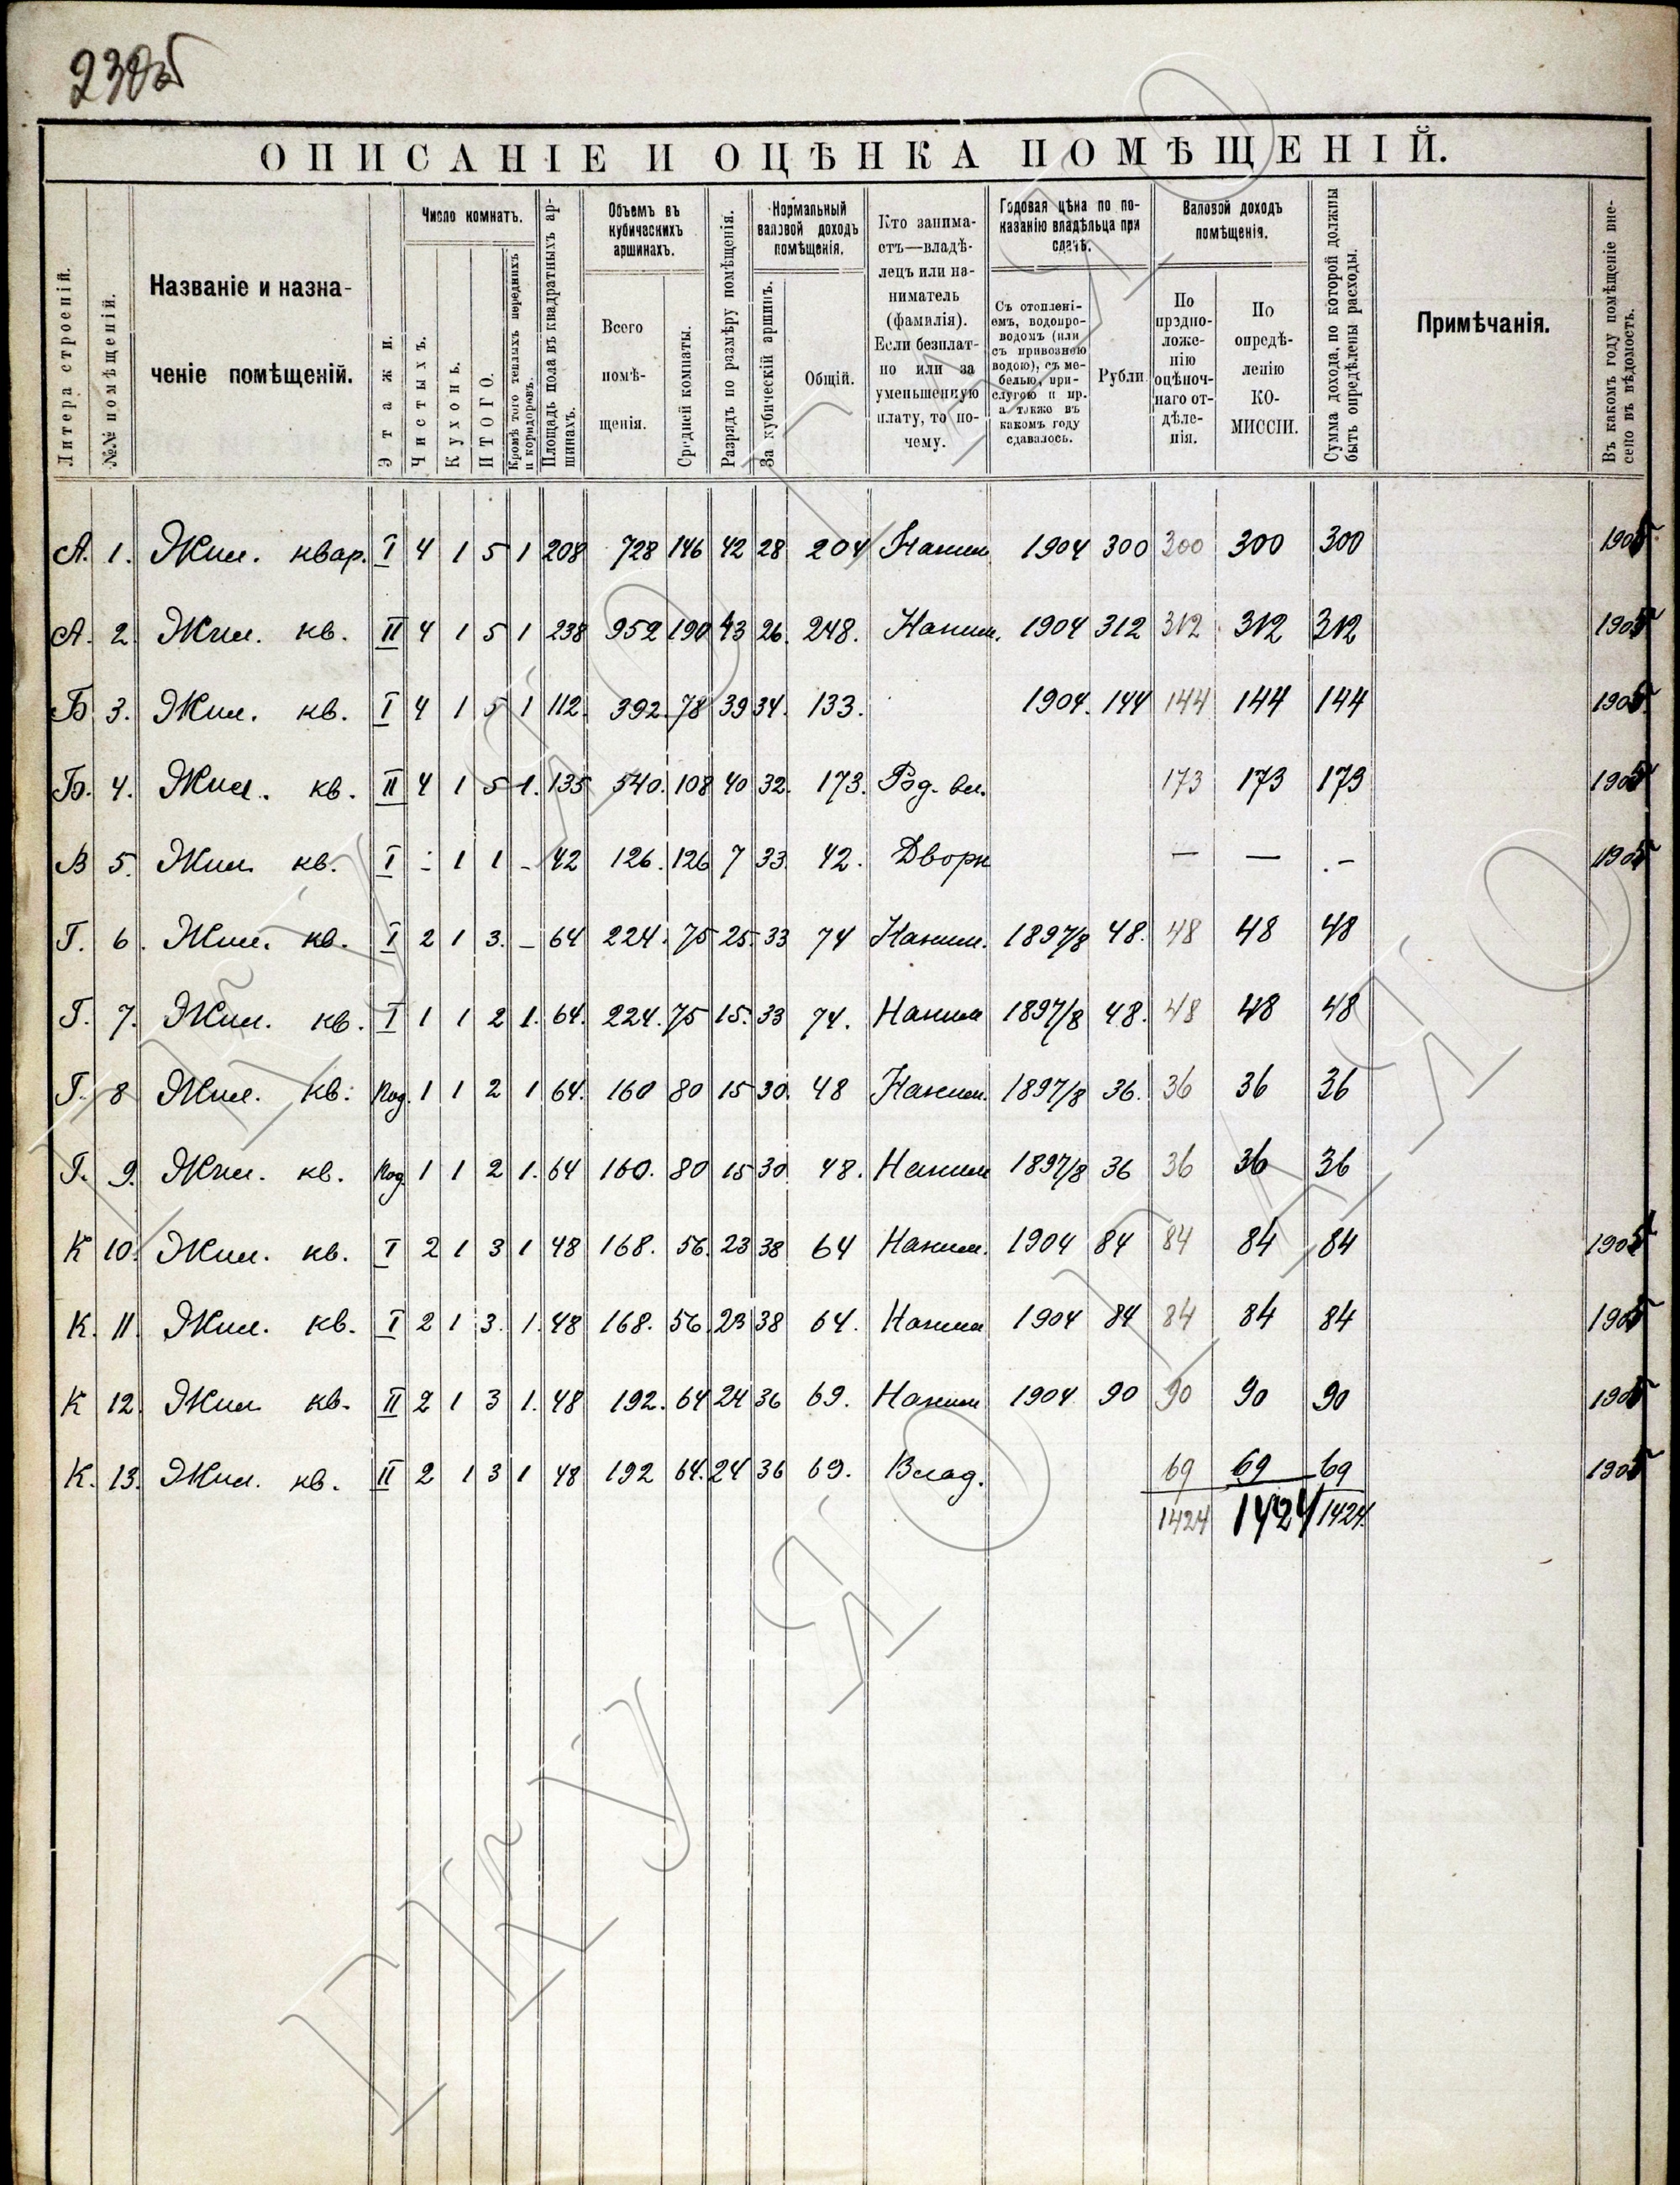 ОПИСАНІЕ И ОЦѢНКА ПОМѢЩЕНІЙ.
Литера строеній.
№№ помѣщеній.
Названіе и назна-
ченіе помѣщеній.
Этажи.
Число комнатъ.
Чистыхъ.
Кухонь.
ИТОГО.
Кромѣ того теплыхъ переднихъ
и коридоровъ.
Площадь пола въ квадратныхъ ар-
шинахъ.
Объемъ въ
кубическихъ
аршинахъ.
Всего
помѣ-
щенія.
Средней комнаты.
Разрядъ по размѣру помѣщенія.
Нормальный
валовой доходъ
помѣщенія.
За кубическій аршинъ.
Общій.
Кто занима-
етъ—владѣ-
лецъ или на-
ниматель
(фамилія).
Если безплат-
но или за
уменьшенную
плату, то по-
чему.
Годовая цѣна по по-
казанію владѣльца при
сдачѣ.
Съ отоплені-
емъ, водопро-
водомъ (или
съ привозною
водою), съ ме-
белью, при-
слугою и пр.
а также въ
какомъ году
сдавалось.
Рубли.
Валовой доходъ
помѣщенія.
По
предло-
же-
нію
оцѣноч-
наго от-
дѣле-
нія.
По
опредѣ-
ленію
КО-
МИССІИ.
Сумма дохода, по которой должны
быть опредѣлены расходы.
Примѣчанія.
Въ какомъ году помѣщеніе вне-
сено въ вѣдомость.
А. 1. Жил. квар. I 4 1 5 1 208 728 146 42 28 204 Наним. 1904 300 300 300 300 1905
А. 2. Жил. кв. II 4 1 5 1 238 952 190 43 26. 248. Наним. 1904 312 312 312 312 1905
Б 3. Жил. кв. I 4 1 5 1 112. 392. 78 39 34. 133. 1904. 144 144 144 144 1905.
Б. 4. Жил. кв. II 4 1 5 1. 135 540. 108 40 32. 173. Род. вл. 173 173 173 1905
В 5. Жил кв. I - 1 1 - 42 126. 126 7 33. 42. Дворн — — — 1905
Г. 6. Жил. кв. I 2 1 3. - 64 224. 75 25. 33 74 Наним. 1897/8 48. 48 48 48
Г. 7. Жил. кв. I 1 1 2 1. 64. 224. 75 15. 33 74. Наним 1897/8 48. 48 48 48
Г. 8 Жил. кв. Под. 1 1 2 1 64. 160 80 15 30. 48 Наним. 1897/8 36. 36 36 36
Г. 9. Жил. кв. Под 1 1 2 1. 64 160. 80 15 30 48. Наним 1897/8 36 36 36 36
К 10. Жил. кв. I 2 1 3 1 48 168. 56. 23 38 64 Наним. 1904 84 84 84 84 1905
К. 11. Жил. кв. I 2 1 3. 1. 48 168. 56. 23 38 64. Наним 1904 84 84 84 84 1905
К 12. Жил кв. II 2 1 3 1. 48 192. 64 24 36 69. Наним 1904 90 90 90 90 1905
К. 13. Жил. кв. II 2 1 3 1 48 192 64. 24 36 69. Влад. 69 69 69 1905
1424 1424 1424.